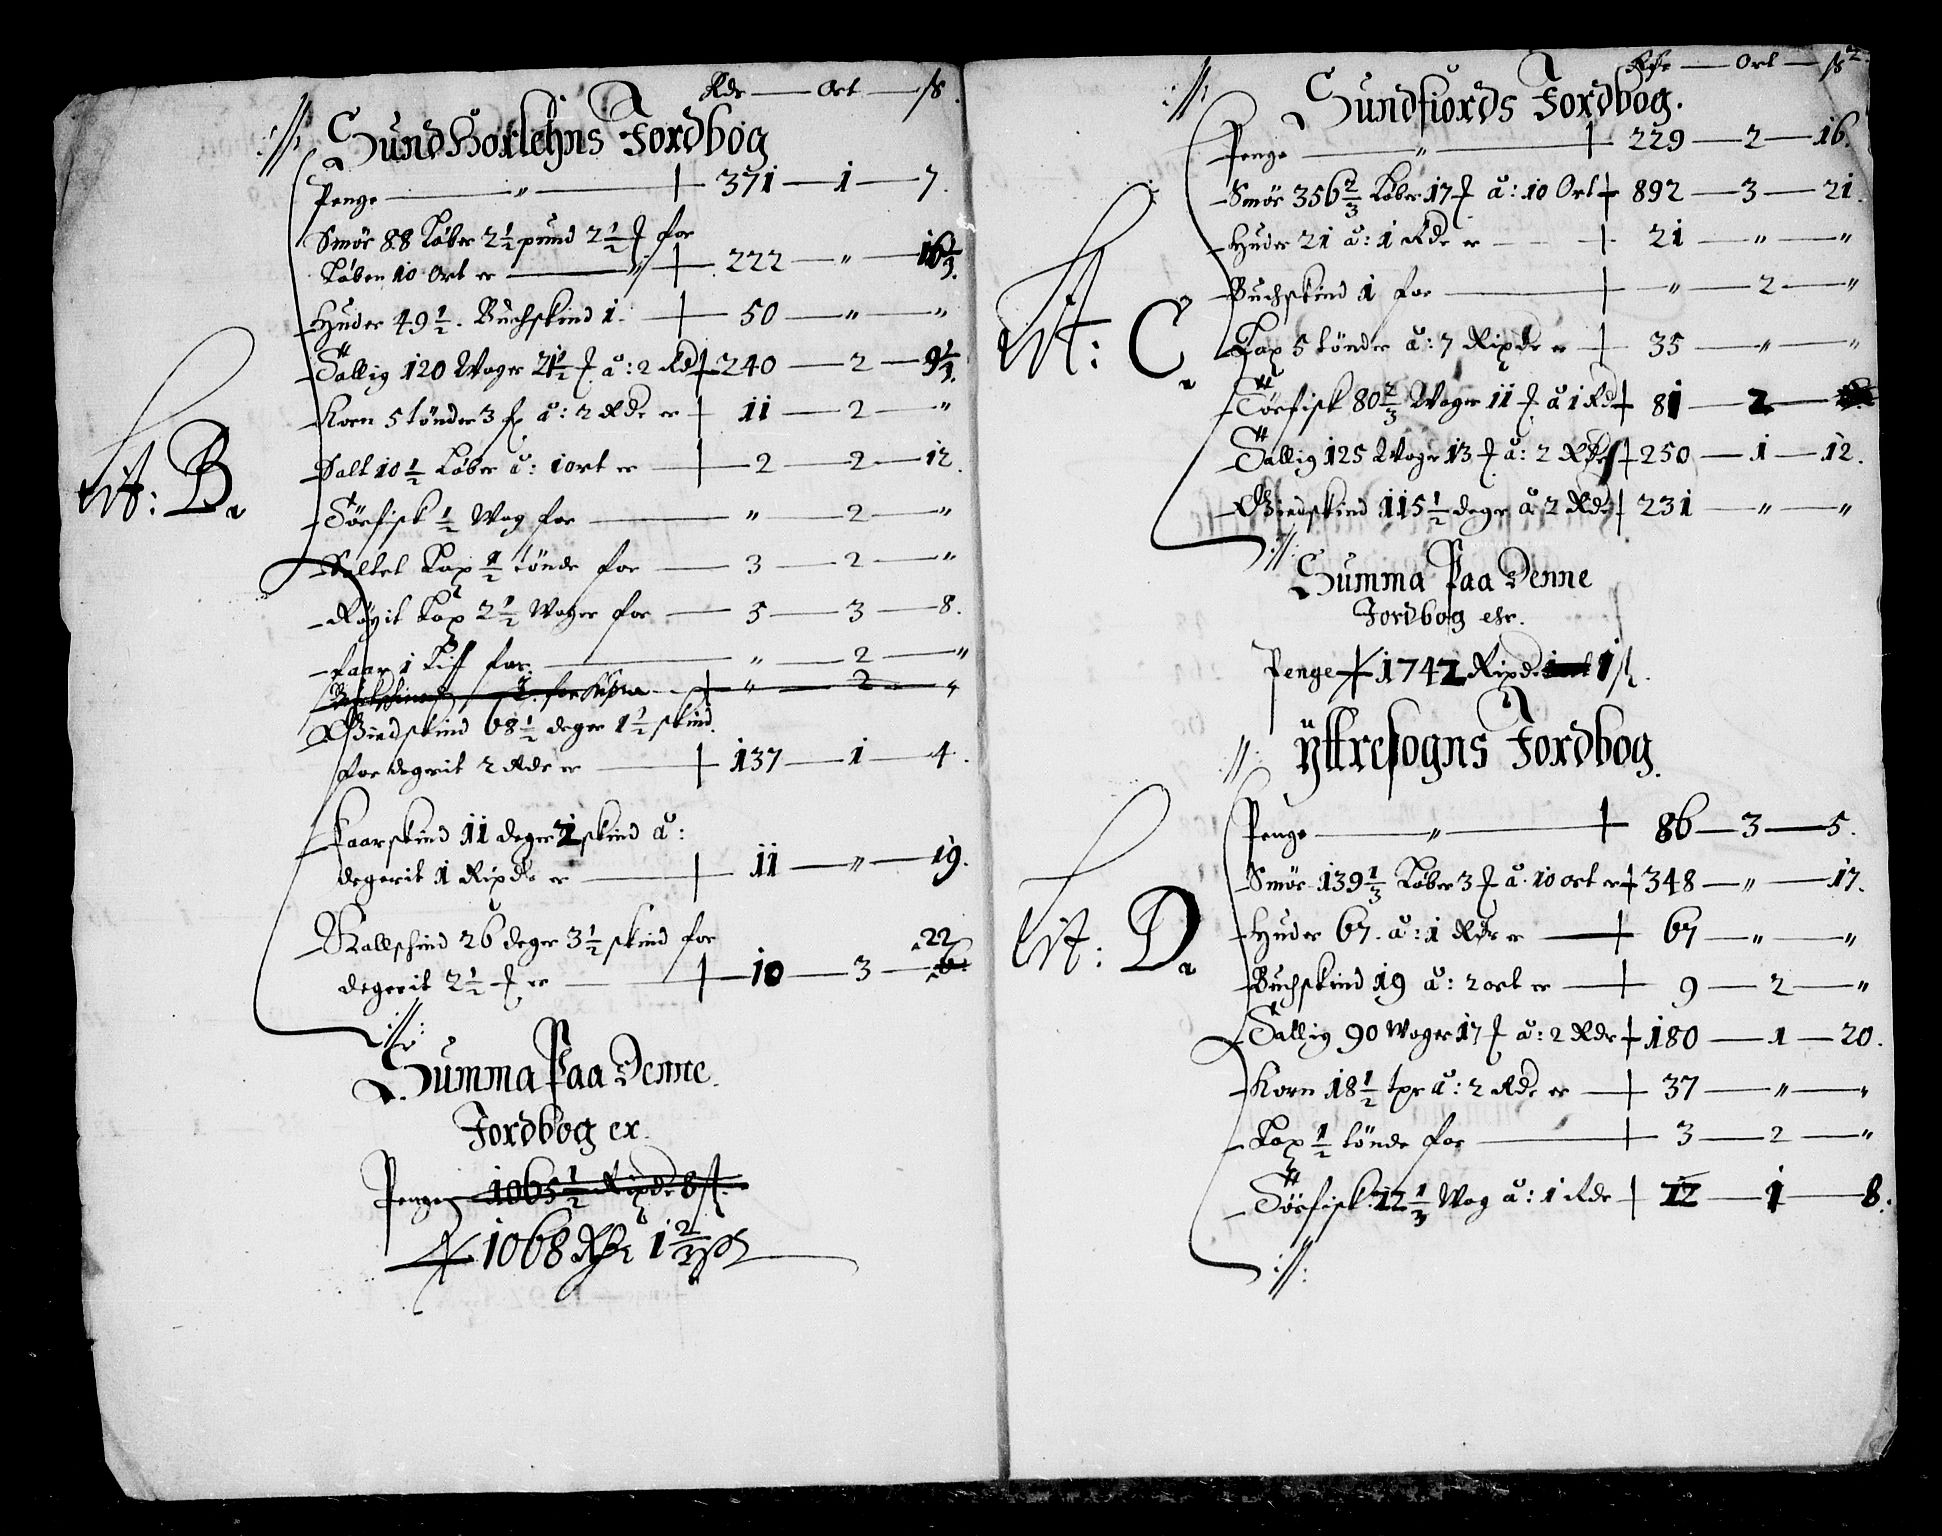 Rdr — Ort — ß.
Sundhorlehns Jordbog
Penge — " — 371 — 1 — 7.
Smör 88 Löber 2 1/2 pund 2 1/2 for
Löben 10 Ort er — " — 222 — " — 16 1/3.
Huder 49 1/2. Buchskind 1. — 50 — " — "
Tallig 120 Woger 21 1/2 å: 2 Rd 240 — 2 — 9 1/3.
Korn 5 tönder 3 å: 2 Rdr er 11 — 2 — "
Salt 10 1/2 Löber å: 1 ort er — 2 — 2 — 12.
Törfisk 1/2 Wog for — " — 2 — "
Saltet Lax 1/2 tönde for — 3 — 2 — "
Röyit Lax 2 1/2 Woger for — 5 — 3 — 8.
faar 1 for — " — 2 — "
Buchskind 1 for — " — 2 — "
Giedskind 68 1/2 deger 1 1/2 skind
for degrit 2 Rdr er — 137 — 1 — 4.
Faarskind 11 deger 2 skind å:
degerit 1 Rixdr er — 11 — " — 19.
Kallfschind 26 deger 3 1/2 skind for
22
degerit 2 1/2 er — 10 — 3 — 6.
Lit: B
Summa Paa Denne
Jordbog er
Penge 1065 1/2 Rixdr 8 ß.
1068 Rdr 1 2/3 ß
Rdr — Ort — ß 2.
Sundfiords Jordbog.
Penge — " — 229 — 2 — 16.
Smör 356 2/3 Löber 17 å: 10 Ort 892 — 3 — 21.
Huder 21 å: 1 Rdr er — 21 — " — "
Buchskind 1 for — " — 2 — "
Lax 5 tönder å: 7 Rixdr er — 35 — " — "
Törfisk 80 2/3 Woger 11 å 1 Rd 81 — 2 —
Tallig 125 Woger 13 å: 2 Rdr 250 — 1 — 12.
Giedskind 115 1/2 deger å 2 Rdr 231 — " — "
Lit: C
Summa Paa Denne
Jordbog ehr.
Penge 1742 Rixdr 1 ß.
Yttresogns Jordbog
Penge — " — 86 — 3 — 5.
Smör 139 1/3 Löber 3 å 10 ort er 348 — " — 17.
Huder 67. å: 1 Rdr er — 67 — " — "
Buchskind 19 å: 2 ort er — 9 — 2 — "
Tallig 90 Woger 17 å: 2 Rdr 180 — 1 — 20.
Korn 18 1/2 tpr å: 2 Rdr er — 37 — " — "
Lax 1/2 tönde for — 3 — 2 — "
Törfisk 12 1/3 Wog å: 1 Rdr 12 — 1 — 8.
Lit: D